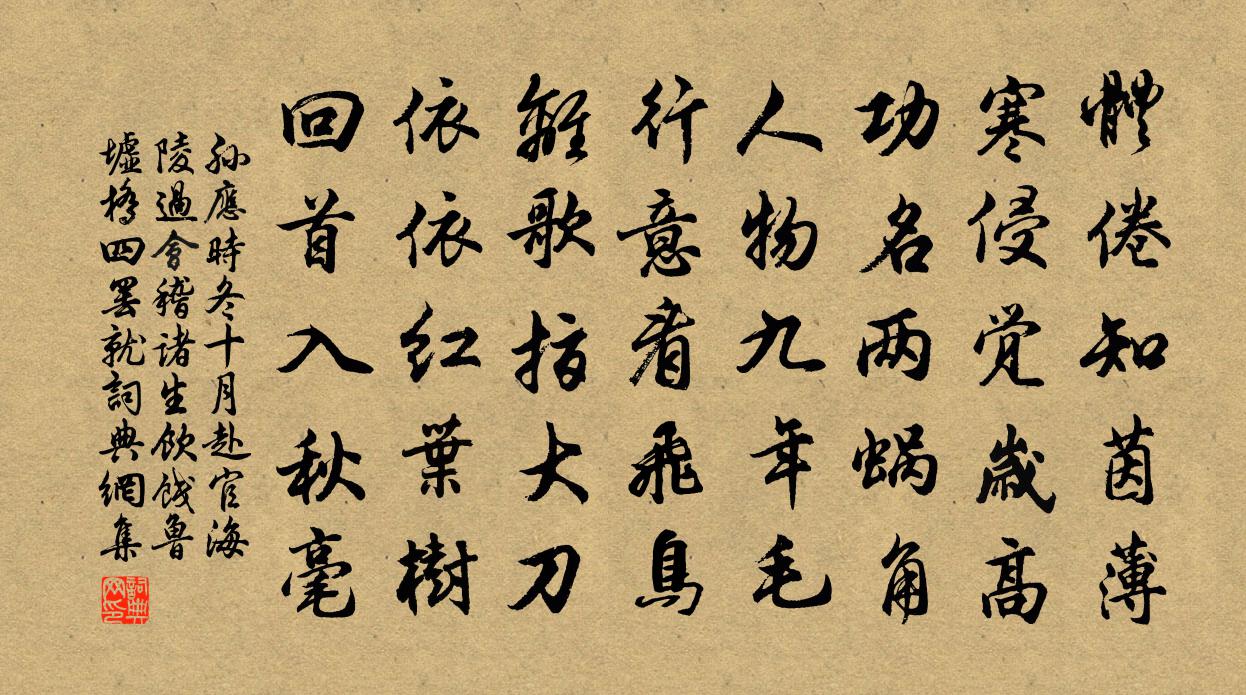 體倦知茵薄
寒侵觉嵗高
功名两蜗角
人物九年毛
行意看飛鳥
離歌指大刀
依依红葉樹
回首入秋毫
孫應時冬十月赴官海
陵過會稽諸生飲餞魯
墟橋四罢就詞典網集
詞典
网印